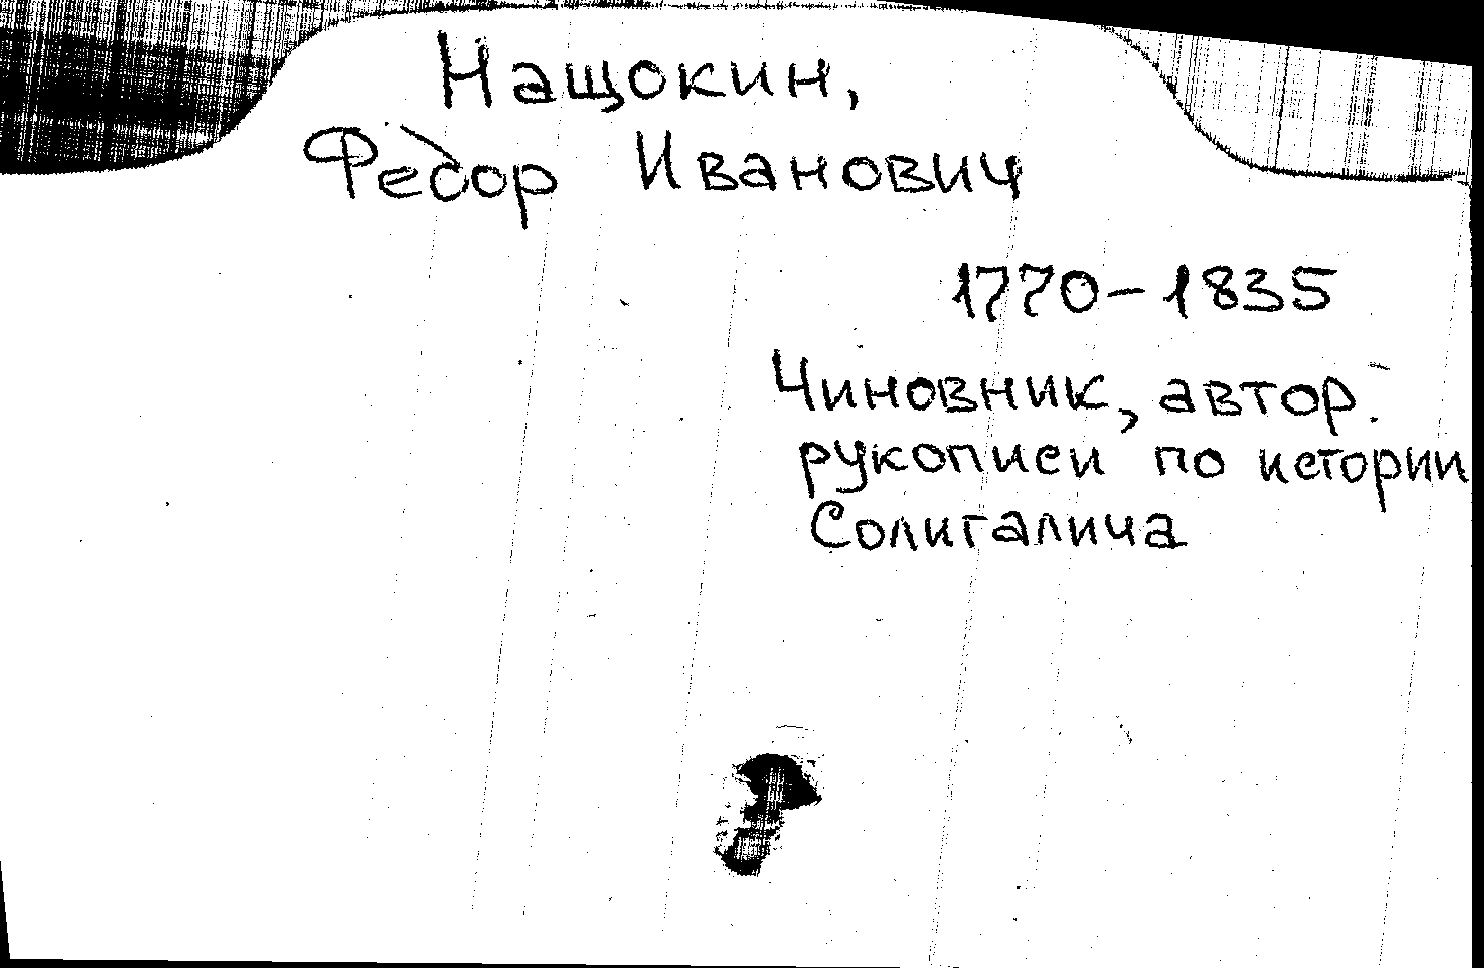 Нащокин,
Федор Иванович
1770-1835
Чиновник, автор
рукописи по истории
Солигалича